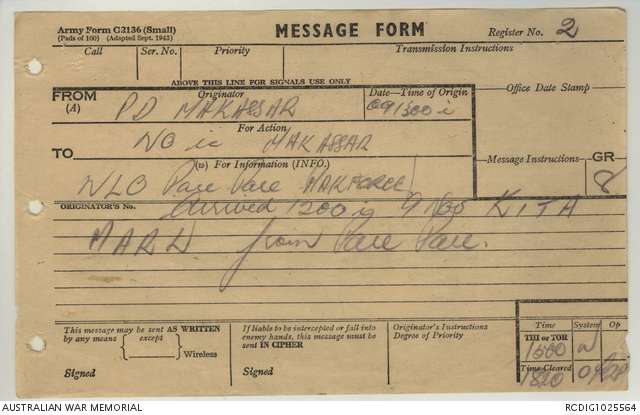 Army Form C2136 (Small)
(Pads of 100) (Adapted Sept. 1943)
MESSAGE FORM
Register No. 2
Call Ser. No. Priority Transmission Instructions
ABOVE THIS LINE FOR SIGNALS USE ONLY
FROM
(A)
Originator
PD MAKASSAR
Date-Time of Origin
091500 i
Office Date Stamp
TO
For Action
NO ic MAKASSAR
(w) For Information (INFO.)
Message Instructions GR
8
NLO Pare Pare MAKFORCE
ORIGINATOR'S No.
Arrived 1200 KITA
MARU from Pare Pare.
This message may be sent AS WRITTEN
by any means except
Wireless
Signed
If liable to be intercepted or fall into
enemy hands, this message must be
sent IN CIPHER
Signed
Originator's Instructions
Degree of Priority
Time System Op
THI or TOR
1500 W
Time Cleared
1820
AUSTRALIAN WAR MEMORIAL RCDIG1025564